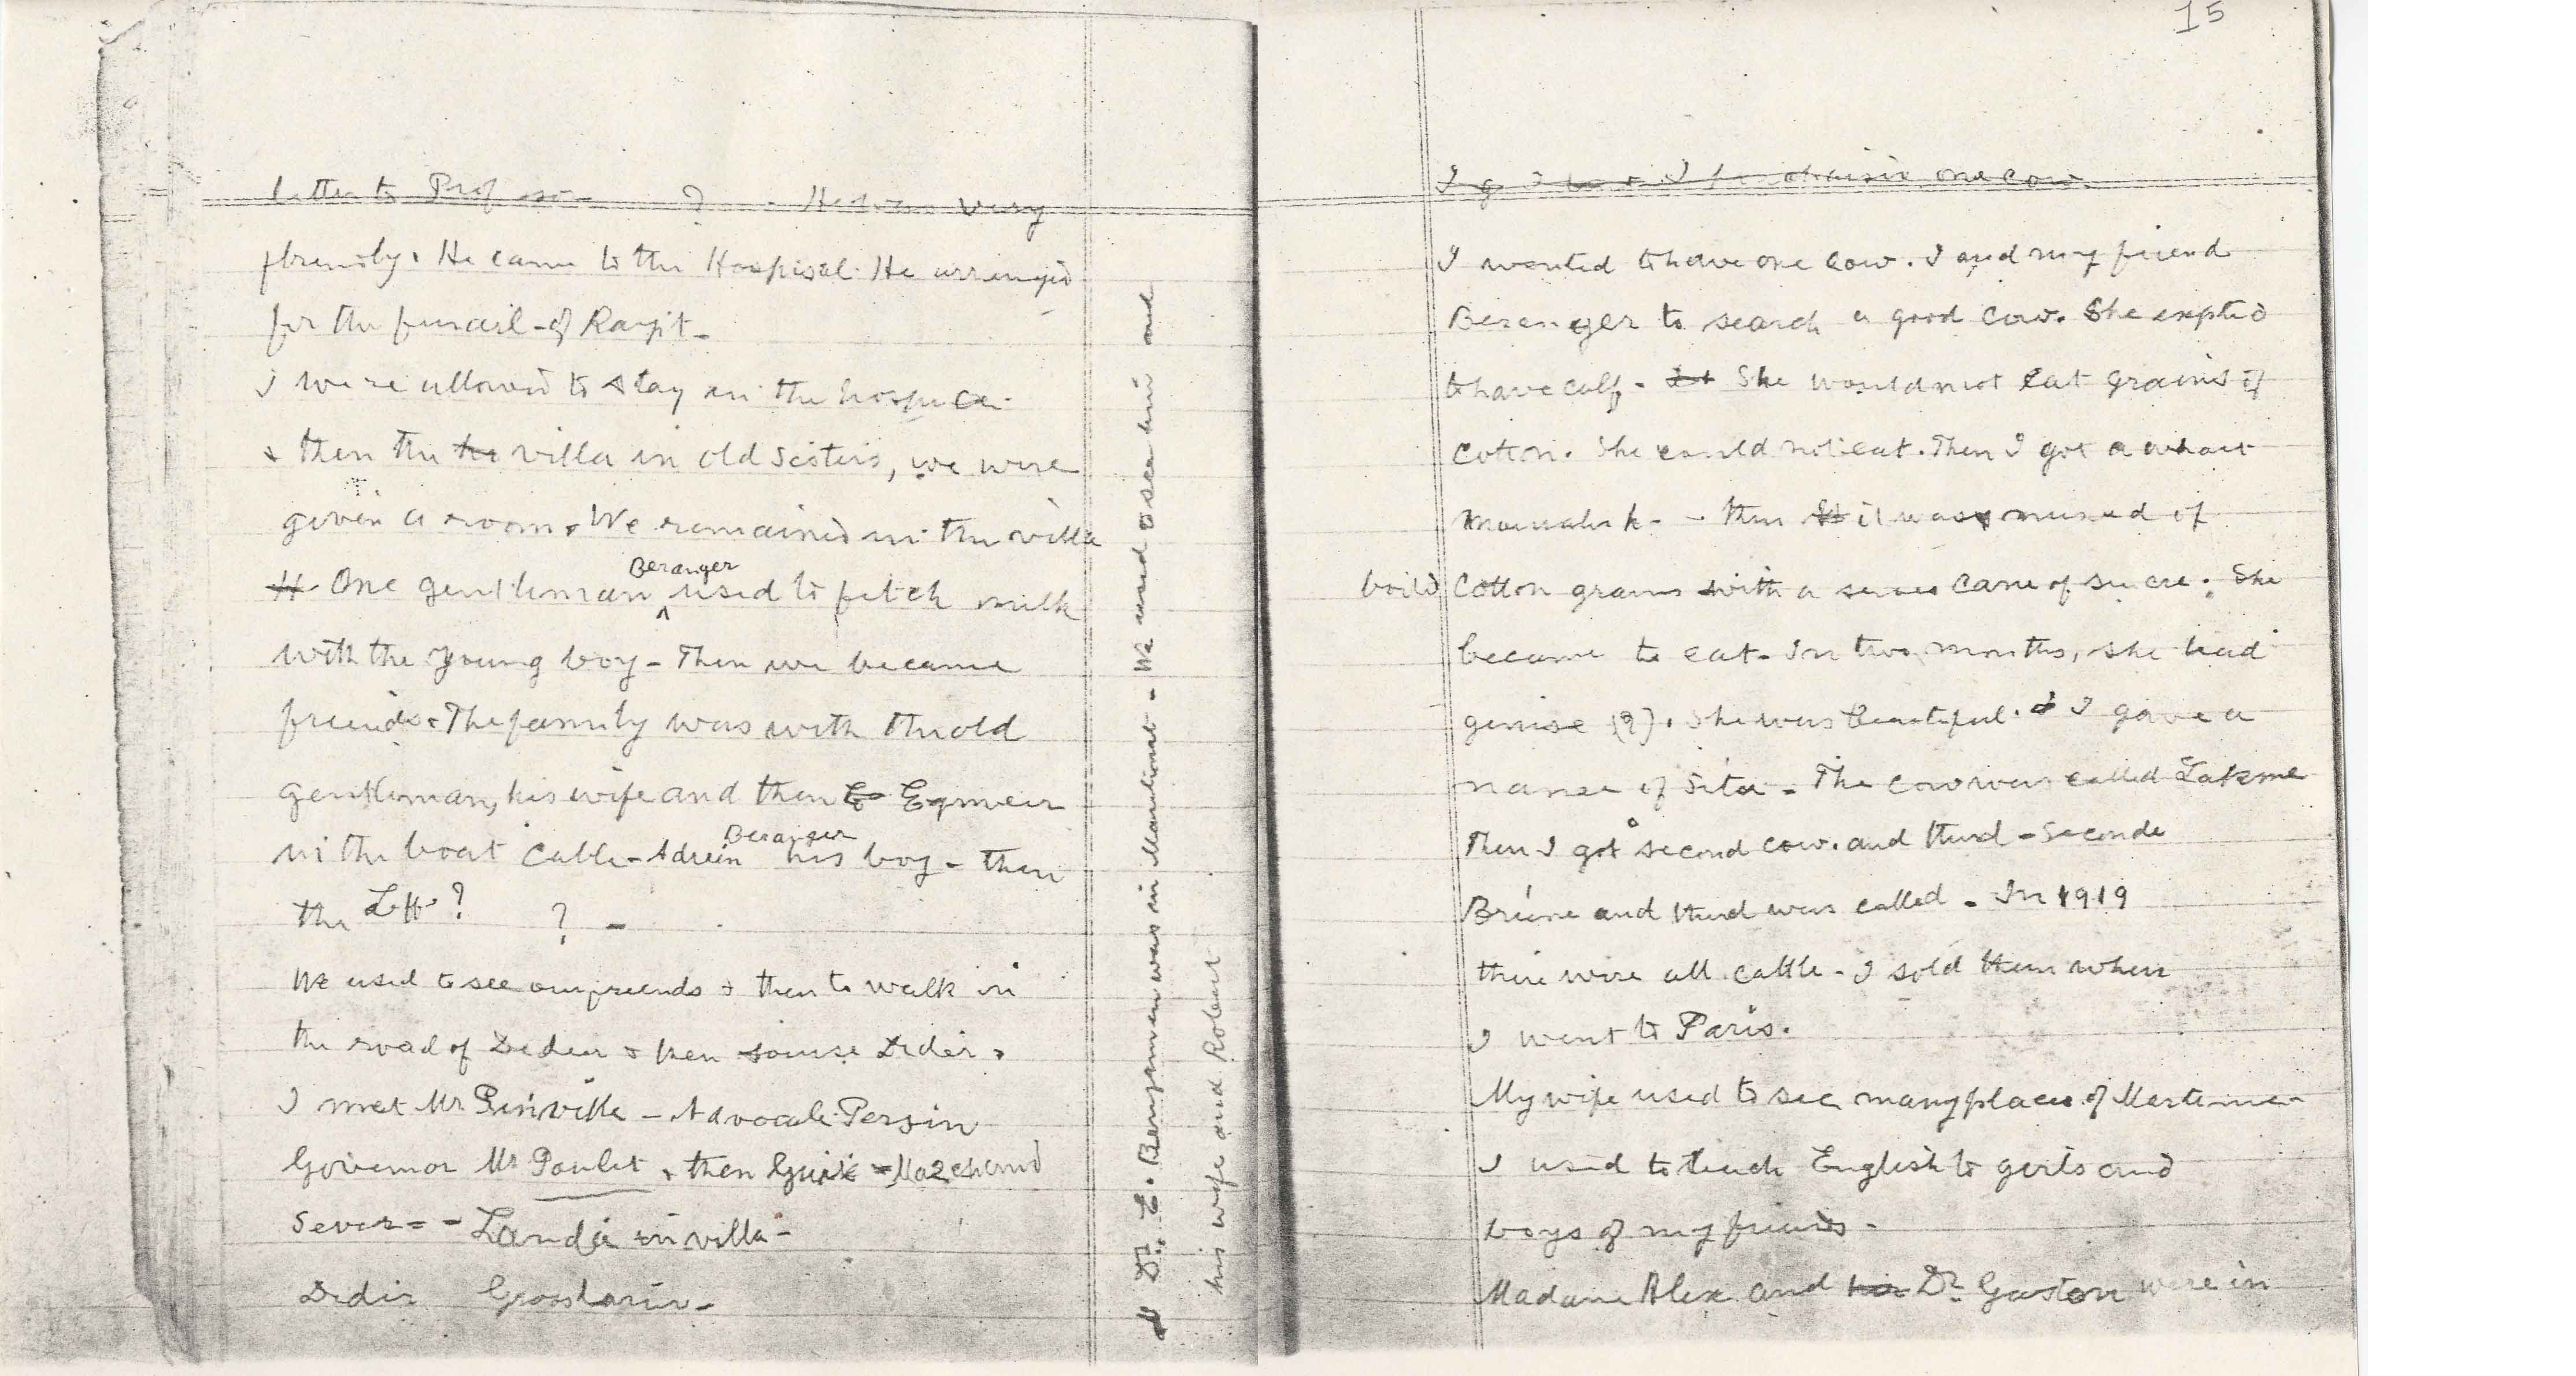 letter to Prof ? He was very
friendly. He came to the Hospital. He arranged
for the funaril of Ranjit-
I were allowed to stay in the
& then the villa in old sisters, we were
given a room. We remained in the villa
One gentleman Beranger used to fetch milk
with the young boy - Then we became
friends. The family was with the old
gentleman, his wife and then
in the boat Cable - Adrien Beranger his boy - then
the ? ? -
We used to see our friends & then to walk in
the road of Didier & then Didier.
I met Mr - Advocate
Governor Mr Poulet, then
Sever - - in villa -
Didir
Dr. E. Benjamen was in Martinat - We used to see him and
his wife and Robert
15
one cow
I wanted to have one cow. I and my friend
Beranger to search a good cow. She expted
to have calf - She would not eat grains of
Cotton. She could not eat. Then I got a
- then it was of
boild Cotton grains with a cane of sucre. She
became to eat. In two months, she had
genise (?). She was beautiful. I gave a
name of Sita - The cow was called Lakme
Then I got second cow. and third - Seconde
Brune and third was called - In 1919
there were all cattle - I sold them when
I went to Paris.
My wife used to see many places of
I used to teach English to girls and
boys of my friends -
Madame Alex and Dr Gaston were in